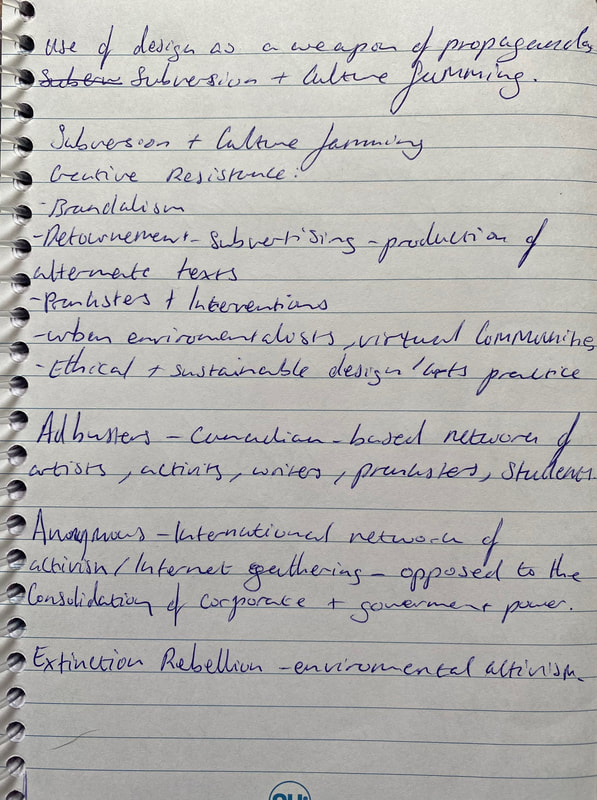 use of design as a weapon of propaganda,
Subversion + Culture Jamming.
Subversion + Culture Jamming
Creative Resistance:
- Brandalism
- Detournement - Subvertising - production of
alternate texts
- Pranksters + Interventions
- urban enviromentalists, virtual Communities
- Ethical + sustainable design / arts practice
Adbusters - Canadian-based network of
artists, activits, writers, pranksters, Students
Anonymous - International network of
activism / Internet gathering - opposed to the
Consolidation of corporate + goverment power.
Extinction Rebellion - enviromental activism.